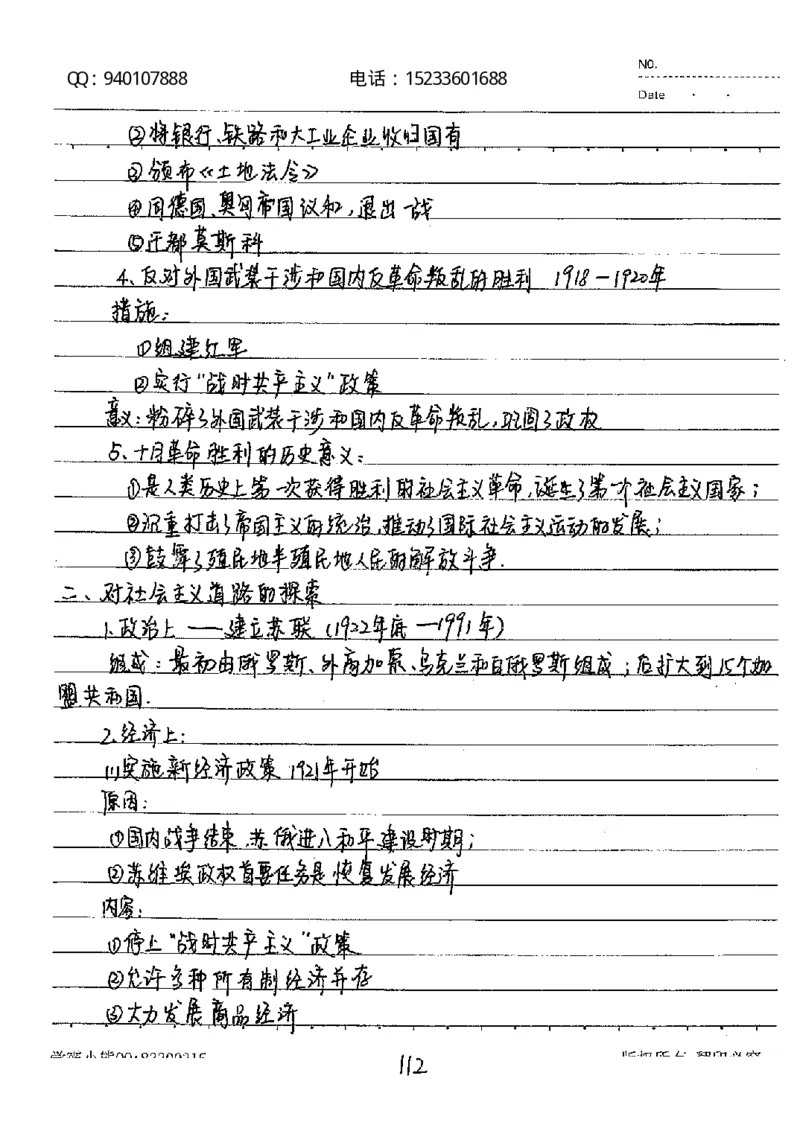 QQ：940107888 电话：15233601688 NO.
Date
②将银行、铁路和大工业企业收归国有
③颁布《土地法令》
④同德国、奥匈帝国议和，退出一战
⑤迁都莫斯科
4、反对外国武装干涉和国内反革命叛乱的胜利 1918－1920年
措施：
①组建红军
②实行“战时共产主义”政策
意义：粉碎了外国武装干涉和国内反革命叛乱，巩固了政权
5、十月革命胜利的历史意义：
①是人类历史上第一次获得胜利的社会主义革命，诞生了第一个社会主义国家；
②沉重打击了帝国主义的统治，推动了国际社会主义运动的发展；
③鼓舞了殖民地半殖民地人民的解放斗争.
二、对社会主义道路的探索
1、政治上——建立苏联（1922年底—1991年）
组成：最初由俄罗斯、外高加索、乌克兰和白俄罗斯组成；后扩大到15个加
盟共和国.
2、经济上：
(1)实施新经济政策 1921年开始
原因：
①国内战争结束，苏俄进入和平建设时期；
②苏维埃政权首要任务是恢复发展经济
内容：
①停止“战时共产主义”政策
②允许多种所有制经济并存
③大力发展商品经济
112